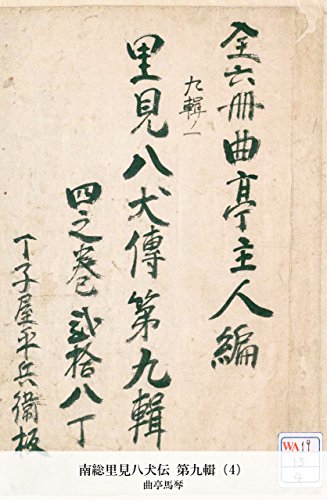 全六册曲亭主人編
九輯ノ一
里見八犬傳第九輯
四之卷 弐拾八丁
丁子屋平兵衞板
WA 19
15
4
南総里見八犬伝 第九輯（4）
曲亭馬琴